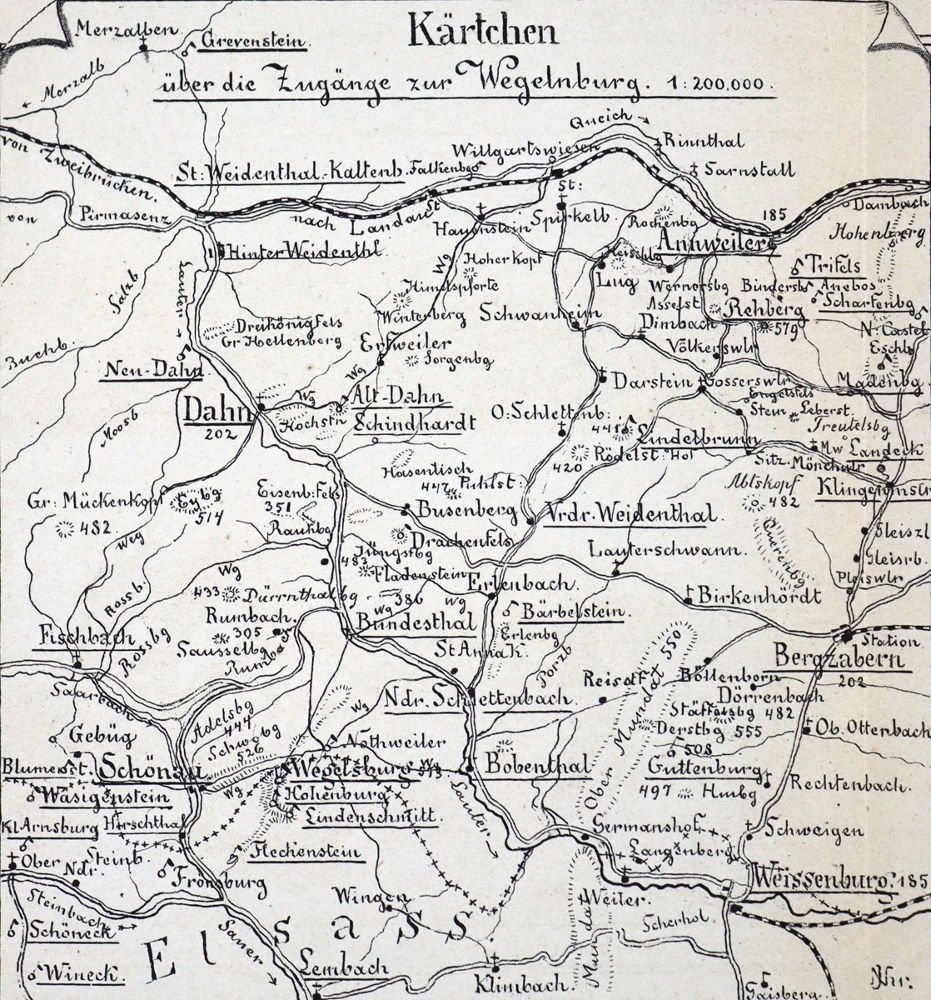 Kärtchen
über die Zugänge zur Wegelnburg. 1:200,000.
Merzalben
Grevenstein.
Merzalb
Queich
Rinnthal
Willgartswiesen
Sarnstall
von Zweibrücken.
St: Weidenthal-Kaltenb.
Falkenbg
St
St:
Dambach
von
Pirmasenz
nach Landau
Hauenstein
Spirkelb.
Rochenbg
185
Annweiler
Hohenberg
Hinter Weidenthl
Hoher Kopf
Wg
Lug
Trifels
Salzb
Lauter
Himelspforte
Wernersbg
Bindersb
Anebos
Scharfenbg
Winterberg
Schwanheim
Asselst
Rehberg
579
Dreihönigfels
Gr Hettenberg
Dimbach
N: Castel
Eschb
Buchb.
Erfweiler
Sorgenbg
Völkerswlr
Neu-Dahn
Wg
Darstein
Gosserswlr
Madenbg
Alt-Dahn
Schindhardt
Dahn
202
Wg
Hochstn
Engelsfels
Stein
Leberst.
Treutelsbg
Moosb
O: Schlettenb:
441
Lindelbrunn
Mw
Landeck
Hof
Rödelst.
420
Sitz.
Mönchwlr
Hasenlisch
447
Puhlst:
Abtskopf
482
Klingenmstr
Gr: Mückenkopf
482
Eybg
514
Eisenb: Fels
351
Busenberg
Vrdr. Weidenthal.
Rauhbg
Drachenfels
Querenbg
Gleiszl
Weg
Jüngstbg
483
Lauterschwann.
Gleisrb.
Pleiswlr
Wg
Fladenstein
Erlenbach.
Rossb.
433
Dürrnthalbg
386
Wg
Wg
Birkenhördt
Bärbelstein.
Rumbach.
305
Bundesthal
Erlenbg
Fischbach
Rossbg
Sausselbg
Rumbach
St Anna K.
Porzb
Station
Bergzabern
202
Saarbach
Reisdf
Böllenborn
Dörrenbach
Ndr. Schlettenbach
Ober Mundat 550
Stäffelsbg 482
Derstbg 555
Adelsbg
444
Wg
Gebüg
Schwobg
526
Nothweiler
508
Ob. Ottenbach
Blumenst.
Schönau
Wegelsburg
573
Wg
Bobenthal
Guttenburg
Wg
Wäsigenstein
Hohenburg
497
Hmbg
Rechtenbach.
Kl Arnsburg
Hirschthal
Lindenschmitt.
Lauter
Germanshof
Schweigen
Ober
Ndr.
Steinb.
Flechenstein
Langenberg
Fronsburg
Wingen
Weiler.
Weissenburg. 185
Steinbach
Schöneck
Elsass
Scherhol.
Sauer
Mundat
Wineck.
Lembach
Klimbach.
Gaisberg.